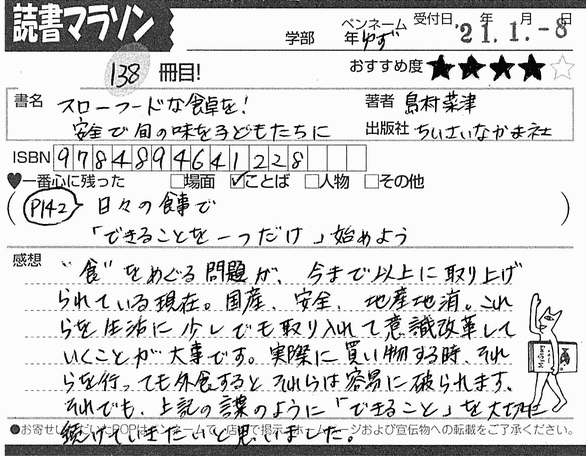 読書マラソン
学部 年 ペンネーム ゆず 受付日 '21年1.月-8日
138 冊目!
おすすめ度 ★★★★☆
書名 スローフードな食卓を!
安全で旬の味を子どもたちに
著者 島村菜津
出版社 ちいさいなかま社
ISBN 9784894641228
♥一番心に残った □場面 ☑ことば □人物 □その他
(P142) 日々の食事で
「できることを一つだけ」始めよう
感想 “食”をめぐる問題が、今まで以上に取り上げ
られている現在。国産、安全、地産地消。これ
らを生活に少しでも取り入れて意識改革して
いくことが大事です。実際に買い物する時、それ
らを行っても外食すると、それらは容易に破られます。
それでも、上記の言葉のように「できること」を大切に
続けていきたいと思いました。
●お寄せいただいたPOPはメンバーで、店頭で掲示、ホームページおよび宣伝物への転載をご了承ください。